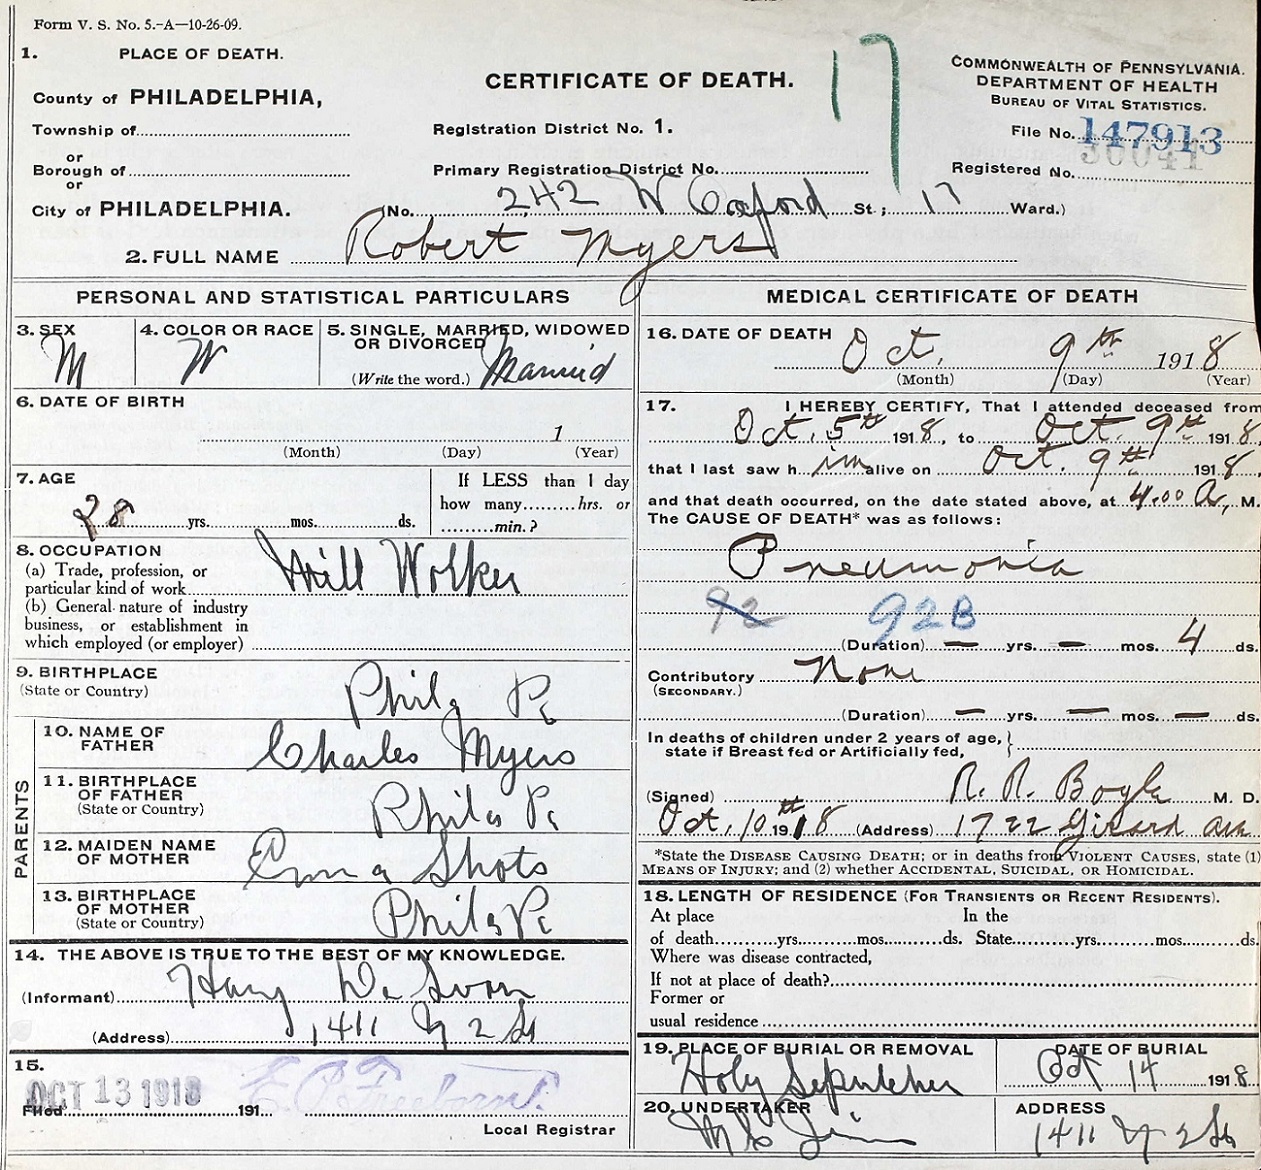 Form V. S. No. 5.-A—10-26-09.
1. PLACE OF DEATH.
County of PHILADELPHIA,
Township of
or
Borough of
or
City of PHILADELPHIA.
CERTIFICATE OF DEATH.
17
Registration District No. 1.
Primary Registration District No.
(No. 242 W Oxford St; 17 Ward.)
COMMONWEALTH OF PENNSYLVANIA.
DEPARTMENT OF HEALTH
BUREAU OF VITAL STATISTICS.
File No. 147913
Registered No. 30041
2. FULL NAME Robert Myers
PERSONAL AND STATISTICAL PARTICULARS
3. SEX M
4. COLOR OR RACE W
5. SINGLE, MARRIED, WIDOWED OR DIVORCED
(Write the word.) Married
6. DATE OF BIRTH
1
(Month) (Day) (Year)
7. AGE
28 yrs. mos. ds.
If LESS than 1 day
how many hrs. or
min.?
8. OCCUPATION
(a) Trade, profession, or
particular kind of work Mill Worker
(b) General nature of industry
business, or establishment in
which employed (or employer)
9. BIRTHPLACE
(State or Country) Phila Pa
PARENTS
10. NAME OF FATHER Charles Myers
11. BIRTHPLACE OF FATHER
(State or Country) Phila Pa
12. MAIDEN NAME OF MOTHER Emma Shots
13. BIRTHPLACE OF MOTHER
(State or Country) Phila Pa
14. THE ABOVE IS TRUE TO THE BEST OF MY KNOWLEDGE.
(Informant)
(Address) 1411 N 2 St
15.
OCT 13 1918
Filed 191 E. P. Freeborn.
Local Registrar
MEDICAL CERTIFICATE OF DEATH
16. DATE OF DEATH
Oct. 9th 1918
(Month) (Day) (Year)
17. I HEREBY CERTIFY, That I attended deceased from
Oct. 5th 1918, to Oct. 9th 1918,
that I last saw him alive on Oct. 9th 1918,
and that death occurred, on the date stated above, at 4.00 A, M.
The CAUSE OF DEATH* was as follows:
Pneumonia
92 92B
(Duration) — yrs. — mos. 4 ds.
Contributory None
(SECONDARY.)
(Duration) — yrs. — mos. — ds.
In deaths of children under 2 years of age,
state if Breast fed or Artificially fed,
(Signed) R. R. Boyle M. D.
Oct. 10th 1918 (Address) 1722 Girard Ave
*State the DISEASE CAUSING DEATH; or in deaths from VIOLENT CAUSES, state (1)
MEANS OF INJURY; and (2) whether ACCIDENTAL, SUICIDAL, OR HOMICIDAL.
18. LENGTH OF RESIDENCE (FOR TRANSIENTS OR RECENT RESIDENTS).
At place In the
of death yrs. mos. ds. State yrs. mos. ds.
Where was disease contracted,
If not at place of death?
Former or
usual residence
19. PLACE OF BURIAL OR REMOVAL
Holy Sepulcher
DATE OF BURIAL
Oct 14 1918
20. UNDERTAKER
ADDRESS
1411 N 2 St